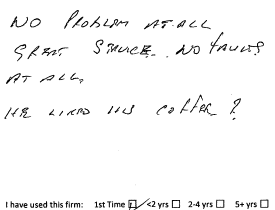 NO PROBLEM AT ALL
GREAT SERVICE. NO FAULTS
AT ALL.
HE LIKED HIS COFFEE ?
I have used this firm: 1st Time ☑ <2 yrs ☐ 2-4 yrs ☐ 5+ yrs ☐